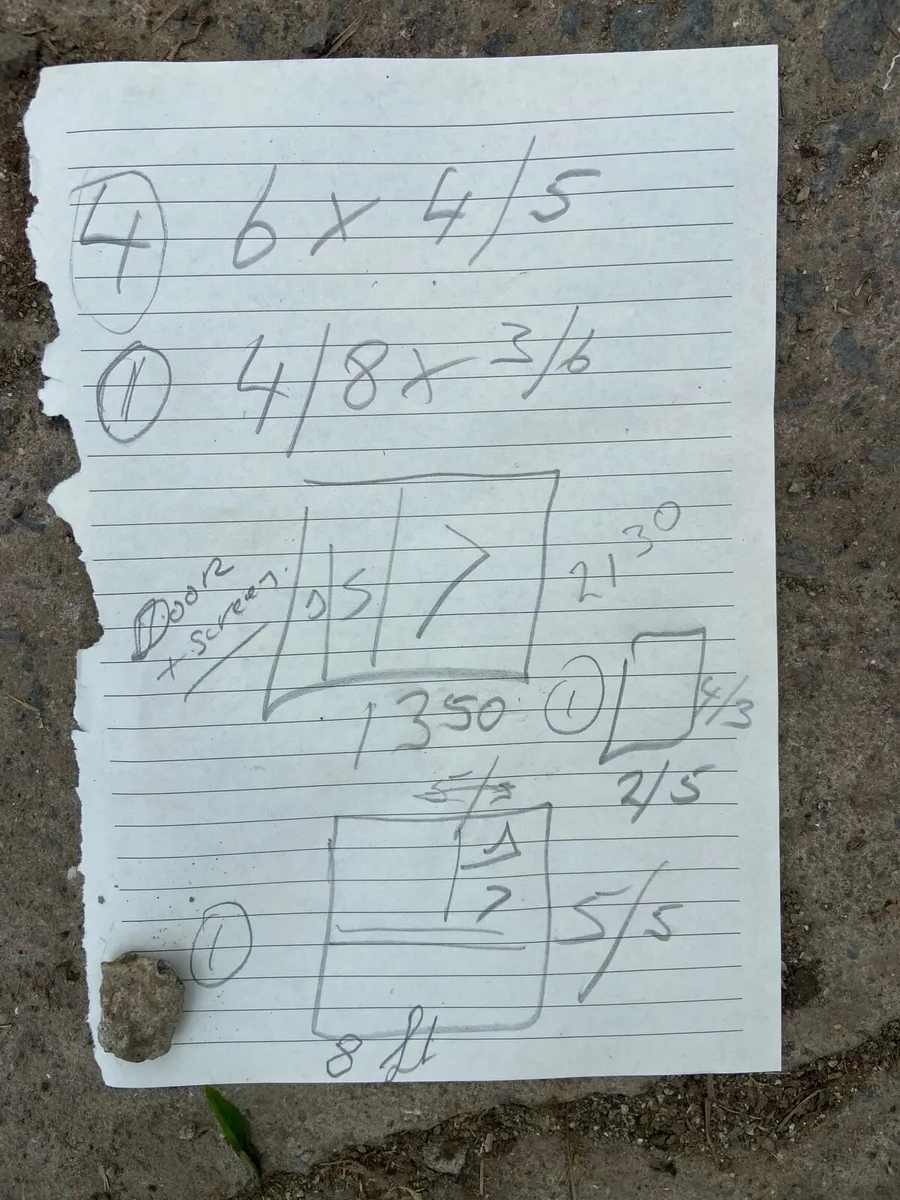 4 6 x 4/5
1 4/8 x 3/6
Door
+ screen.
D S >
2130
1350
1
4/3
2/5
1
>
5/5
8 ft